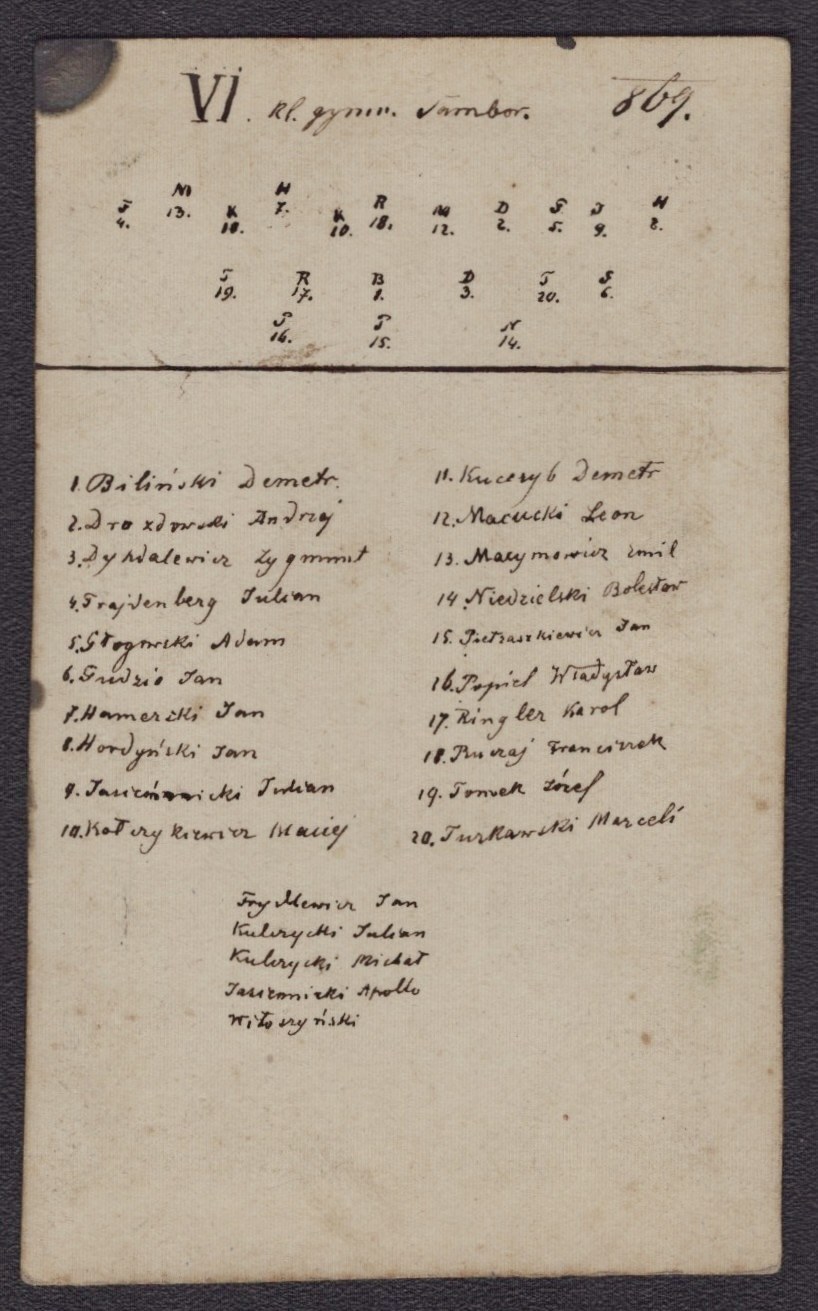 VI. kl. gymn. Sambor. 869.
M H
F 13. K 7. K R M D G J H
4. 10. 10. 18. 12. 2. 5. 9. 8.
T R B D T G
19. 17. 1. 3. 20. 6.
P P N
16. 15. 14.
1. Biliński Demetr.
2. Drozdowski Andrzej
3. Dyhdalewicz Zygmunt
4. Frajdenberg Julian
5. Głogowski Adam
6. Gudzio Jan
7. Hamerski Jan
8. Hordyński Jan
9. Julian
10. Kołczykiewicz Maciej
11. Kuceryb Demetr
12. Macucki Leon
13. Maxymowicz Emil
14. Niedzielski Bolesław
15. Pietraszkiewicz Jan
16. Popiel Władysław
17. Ringler Karol
18. Ruczaj Franciszek
19. Tomek Józef
20. Turkawski Marceli
Frydlewicz Jan
Kulczycki Julian
Kulczycki Michał
Jasiennicki Apollo
Witoszyński